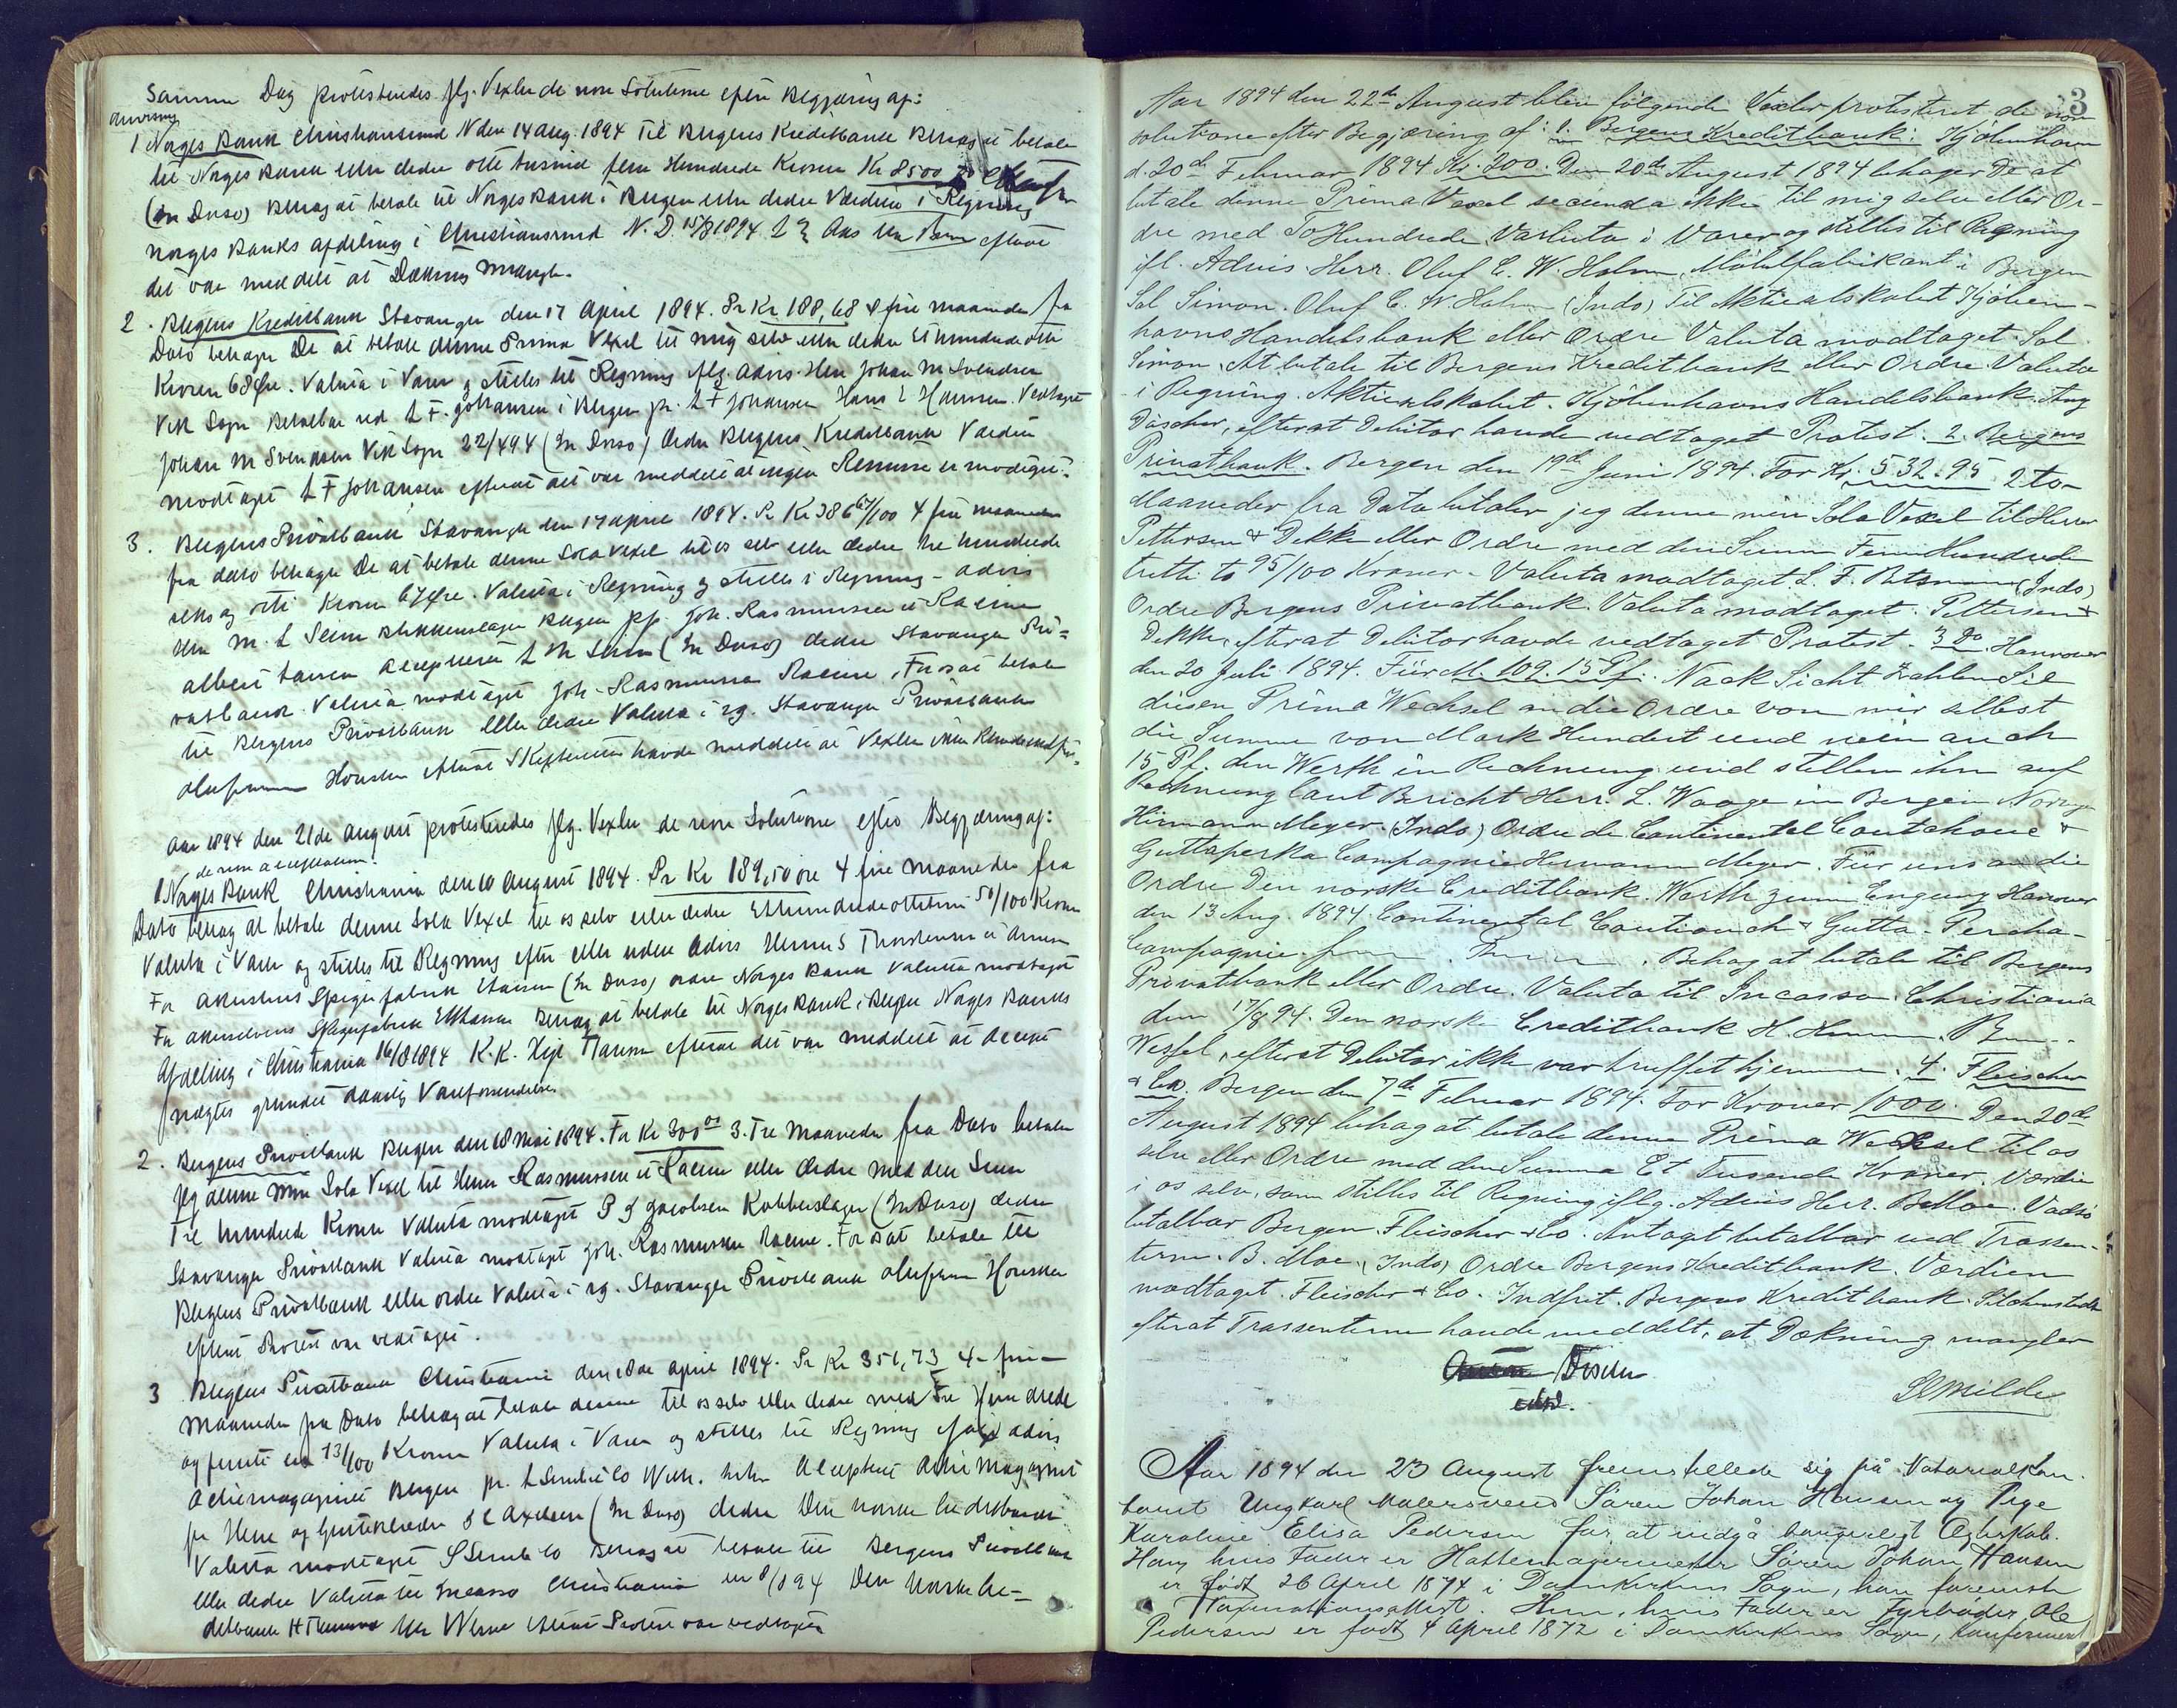 Samme Dag protesteredes flg. Vexler de non Solutione efter Begjæring af:
Anvisning
1 Norges Bank Christiansund N den 14 Aug. 1894 Til Bergens Kreditbank Behag at betale
til Norges Bank eller Ordre otte tusind fem Hundrede Kroner Kr 8500
(In Dorso) Behag at betale til Norges Bank i Bergen eller Ordre Værdien i Regning
Norges Banks Afdeling i Christiansund N. D 15/8 1894 efterat
det var meddelt at Dækning mangle.
2. Bergens Kreditbank Stavanger den 17 April 1894. Pr Kr 188,68 4 fire maaneder fra
Dato behager De at betale denne Prima Vexel til mig selv eller Ordre Ethundredeotte
Kroner 68 Øre. Valuta i Varer og stilles til Regning flg. Advis. Herr Johan M Svendsen
Vik Sogn Betalbar ved L F. Johansen i Bergen pr. L F Johansen Hans L Hansen. Vedtaget
Johan M Svendsen Vik Sogn 22/4 94 (In Dorso) Ordre Bergens Kreditbank Værdien
modtaget L F Johansen efterat det var meddelt at ingen Remisse er modtaget.
3. Bergens Privatbank Stavanger den 17 April 1894. Pr Kr 386 67/100 4 fire maaneder
fra dato behager De at betale denne Sola Vexel til os selv eller Ordre Tre hundrede
seks og otti Kroner 67 Øre. Valuta i Regning og stilles i Regning - Advis
Herr M. L Seim Blikkenslager Bergen pp. Joh. Rasmussen & Racine
Albert Larsen Accepteret L M Seim (In Dorso) Ordre Stavanger Pri=
vatbank. Valuta modtaget Joh. Rasmussen Racine, For os at betale
til Bergens Privatbank eller Ordre Valuta i rg. Stavanger Privatbank
Olufsen Housken efterat havde meddelt at Vexler ikke
Aar 1894 den 21de August protesteredes flg. Vexler de non Solutione efter Begjæring af:
de non acceptation.
1 Norges Bank Christiania den 10 August 1894. Pr Kr 189,50 øre 4 fire maaneder fra
Dato behag at betale denne Sola Vexel til os selv eller Ordre Ethundredeottini 50/100 Kroner
Valuta i Varer og stilles til Regning efter eller uden Advis Herrer S Thorstensen &
For Akershus Spigerfabrik Hansen (In Dorso) Ordre Norges Bank Valuta modtaget
For Akerselvens Spigerfabrik Behag at betale til Norges Bank i Bergen Norges Banks
Afdeling i Christiania 16/8 1894 K.K. efterat det var meddelt at Accept
nægtes grundet daarlig Vareforsendelse
2. Bergens Privatbank Bergen den 18 Mai 1894. For Kr 300 00 3. Tre Maaneder fra Dato betaler
jeg denne min Sola Vexel til Herrer Rasmussen & Racine eller Ordre med den Sum
Tre hundrede Kroner Valuta modtaget P J Jacobsen Kobberslager (In Dorso) Ordre
Stavanger Privatbank Valuta modtaget Joh. Rasmussen Racine. For os at betale til
Bergens Privatbank eller ordre Valuta i rg. Stavanger Privatbank Olufsen Housken
efterat Protest var vedtaget.
3 Bergens Privatbank Christiania den 18de April 1894. Pr Kr 351,73 4- fire-
maaneder fra Dato behag at betale denne til os selv eller Ordre med Tre Hundrede
og femti en 73/100 Kroner Valuta i Varer og stilles til Regning ifølge advis
Actiemagazinet Bergen pr. Accepteret Actiemagazinet
for Herre og Gutteklæder S C Axelsen (In Dorso) Ordre Den norske Creditbank
Valuta modtaget Behag at betale til Bergens Privatbank
eller Ordre Valuta til Incasso Christiania den 8/8 94 Den Norske Cre-
ditbank H efterat Protest var vedtaget
3
Aar 1894 den 22de August blev følgende Vexler protesteret de non
solutione efter Begjæring af: 1. Bergens Kreditbank: Kjøbenhavn
d. 20de Februar 1894 Kr. 200. Den 20de August 1894 behager De at
betale denne Prima Vexel secunda ikke til mig selv eller Or-
dre med To Hundrede Valuta i Varer og stilles til Regning
ifl. Advis Herr. Oluf C. W. Holm, Möbelfabrikant i Bergen
Sal Simon. Oluf C. W. Holm (Indo) Til Aktieselskabet Kjöben-
havns Handelsbank eller Ordre Valuta modtaget Sal
Simon. At betale til Bergens Kreditbank eller Ordre Valuta
i Regning. Aktieselskabet. Kjöbenhavns Handelsbank. Aug
Däscher, efterat Debitor havde vedtaget Protest. 2. Bergens
Privatbank. Bergen den 19de Juni 1894. For Kr. 532.95 2 to-
Maaneder fra Dato betaler jeg denne min Sola Vexel til Herrer
Pettersen & Dekke eller Ordre med den Summ Fem Hundrede
tretti to 95/100 Kroner. Valuta modtaget L. F. (Indo)
Ordre Bergens Privatbank. Valuta modtaget. Pettersen &
Dekke, efterat Debitor havde vedtaget Protest. 3 Do Hannover
den 20 Juli 1894. Für M. 109.15 Pf. Nach Sicht Zahlen Sie
diesen Prima Wechsel an die Ordre von mir selbst
die Summe von Mark Hundert und nein auch
15 Pf. den Werth in Rechnung und stellen ihn auf
Rechnung laut Bericht Herr. L. Waage in Bergen Norvegen
Hermann Meyer. (Indo) Ordre de Continental Coutchouc &
Guttaperka Compagnie Hermann Meyer. Für uns an die
Ordre Den norske Creditbank. Werth zum Engang Hanover
den 13 Aug. 1894. Continental Coutiouch & Gutta-Percha-
Compagnie Behag at betale til Bergens
Privatbank eller Ordre. Valuta til Incasso. Christiania
den 17/8 94. Den norske Creditbank H.
Wesfel, efterat Debitor ikke var truffet hjemme. 4. Fleischer
& Co. Bergen den 7de Februar 1894. For Kroner 1000. Den 20de
August 1894 behag at betale denne Prima Wechsel til os
selv eller Ordre med den Summa Et Tusende Kroner. Værdien
i os selv, som stilles til Regning iflg. Advis Herr. B. Moe. Vadsö
betalbar Bergen. Fleischer & Co. Antaget betalbar ved Trassen-
terne. B. Moe. (Indo) Ordre Bergens Kreditbank. Værdien
modtaget. Fleischer & Co. Indfrit. Bergens Kreditbank.
efterat Trassenterne havde meddelt, at Dækning mangler
Aar 1894 den 23 August fremstillede sig på Notarialkon-
toret Ungkarl Malersvend Sören Johan Hansen og Pige
Karoline Elisa Pedersen for at indgå borgerligt Ægteskab.
Han, hvis Fader er Hattemagermester Sören Johan Hansen
er född 26 April 1874 i Domkirkens Sogn, han foreviste
Vaxinationsattest. Hun, hvis Fader er Fyrböder Ole
Pedersen er født 4 April 1872 i Domkirkens Sogn, Konfirmeret